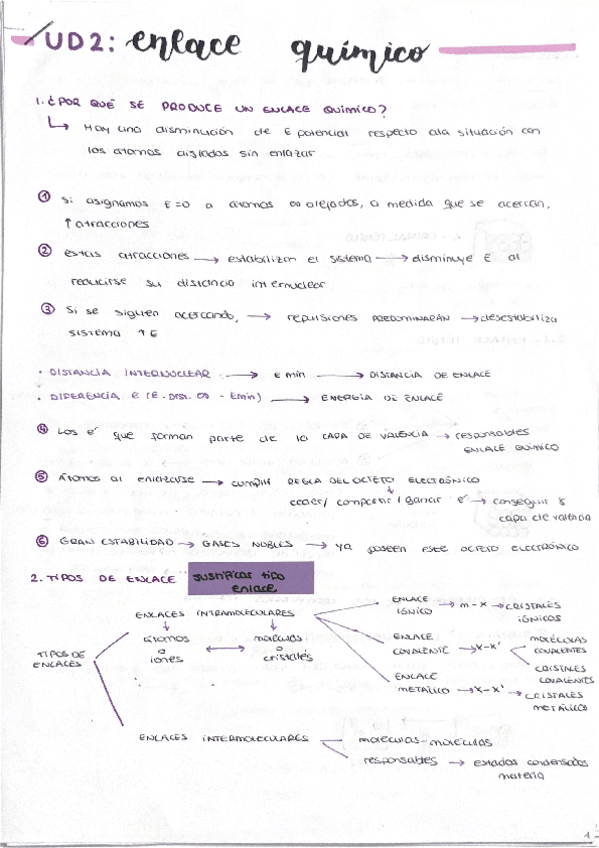 UD2: enlace químico
1. ¿POR QUÉ SE PRODUCE UN ENLACE QUÍMICO?
↳ Hay una disminución de E potencial respecto a la situación con
los átomos aislados sin enlazar
① Si asignamos E=0 a átomos ∞ alejados, a medida que se acercan,
↑ atracciones
② estas atracciones → estabilizan el sistema → disminuye E al
reducirse su distancia internuclear
③ Si se siguen acercando, → repulsiones PREDOMINARÁN → desestabiliza
sistema ↑E
· DISTANCIA INTERNUCLEAR → E min → DISTANCIA DE ENLACE
· DIFERENCIA E (E. DIST. ∞ - Emin) → ENERGÍA DE ENLACE
④ Los e⁻ que forman parte de la CAPA DE VALENCIA → responsables
ENLACE QUÍMICO
⑤ Átomos al enlazarse → cumplir REGLA DEL OCTETO ELECTRÓNICO
↓
ceder/ compartir / ganar e⁻ → conseguir 8
capa de valencia
⑥ GRAN ESTABILIDAD → GASES NOBLES → ya poseen este OCTETO ELECTRÓNICO
2. TIPOS DE ENLACE justificar tipo
enlace
TIPOS DE
ENLACES
ENLACES INTRAMOLECULARES
↓ ↓
átomos moléculas
o ↔ o
iones cristales
ENLACE
IÓNICO → m-x → CRISTALES
IÓNICOS
ENLACE
COVALENTE → x-x'
MOLÉCULAS
COVALENTES
CRISTALES
COVALENTES
ENLACE
METÁLICO → x-x' → CRISTALES
METÁLICOS
ENLACES INTERMOLECULARES
moléculas-moléculas
responsables → estados condensados
materia
1